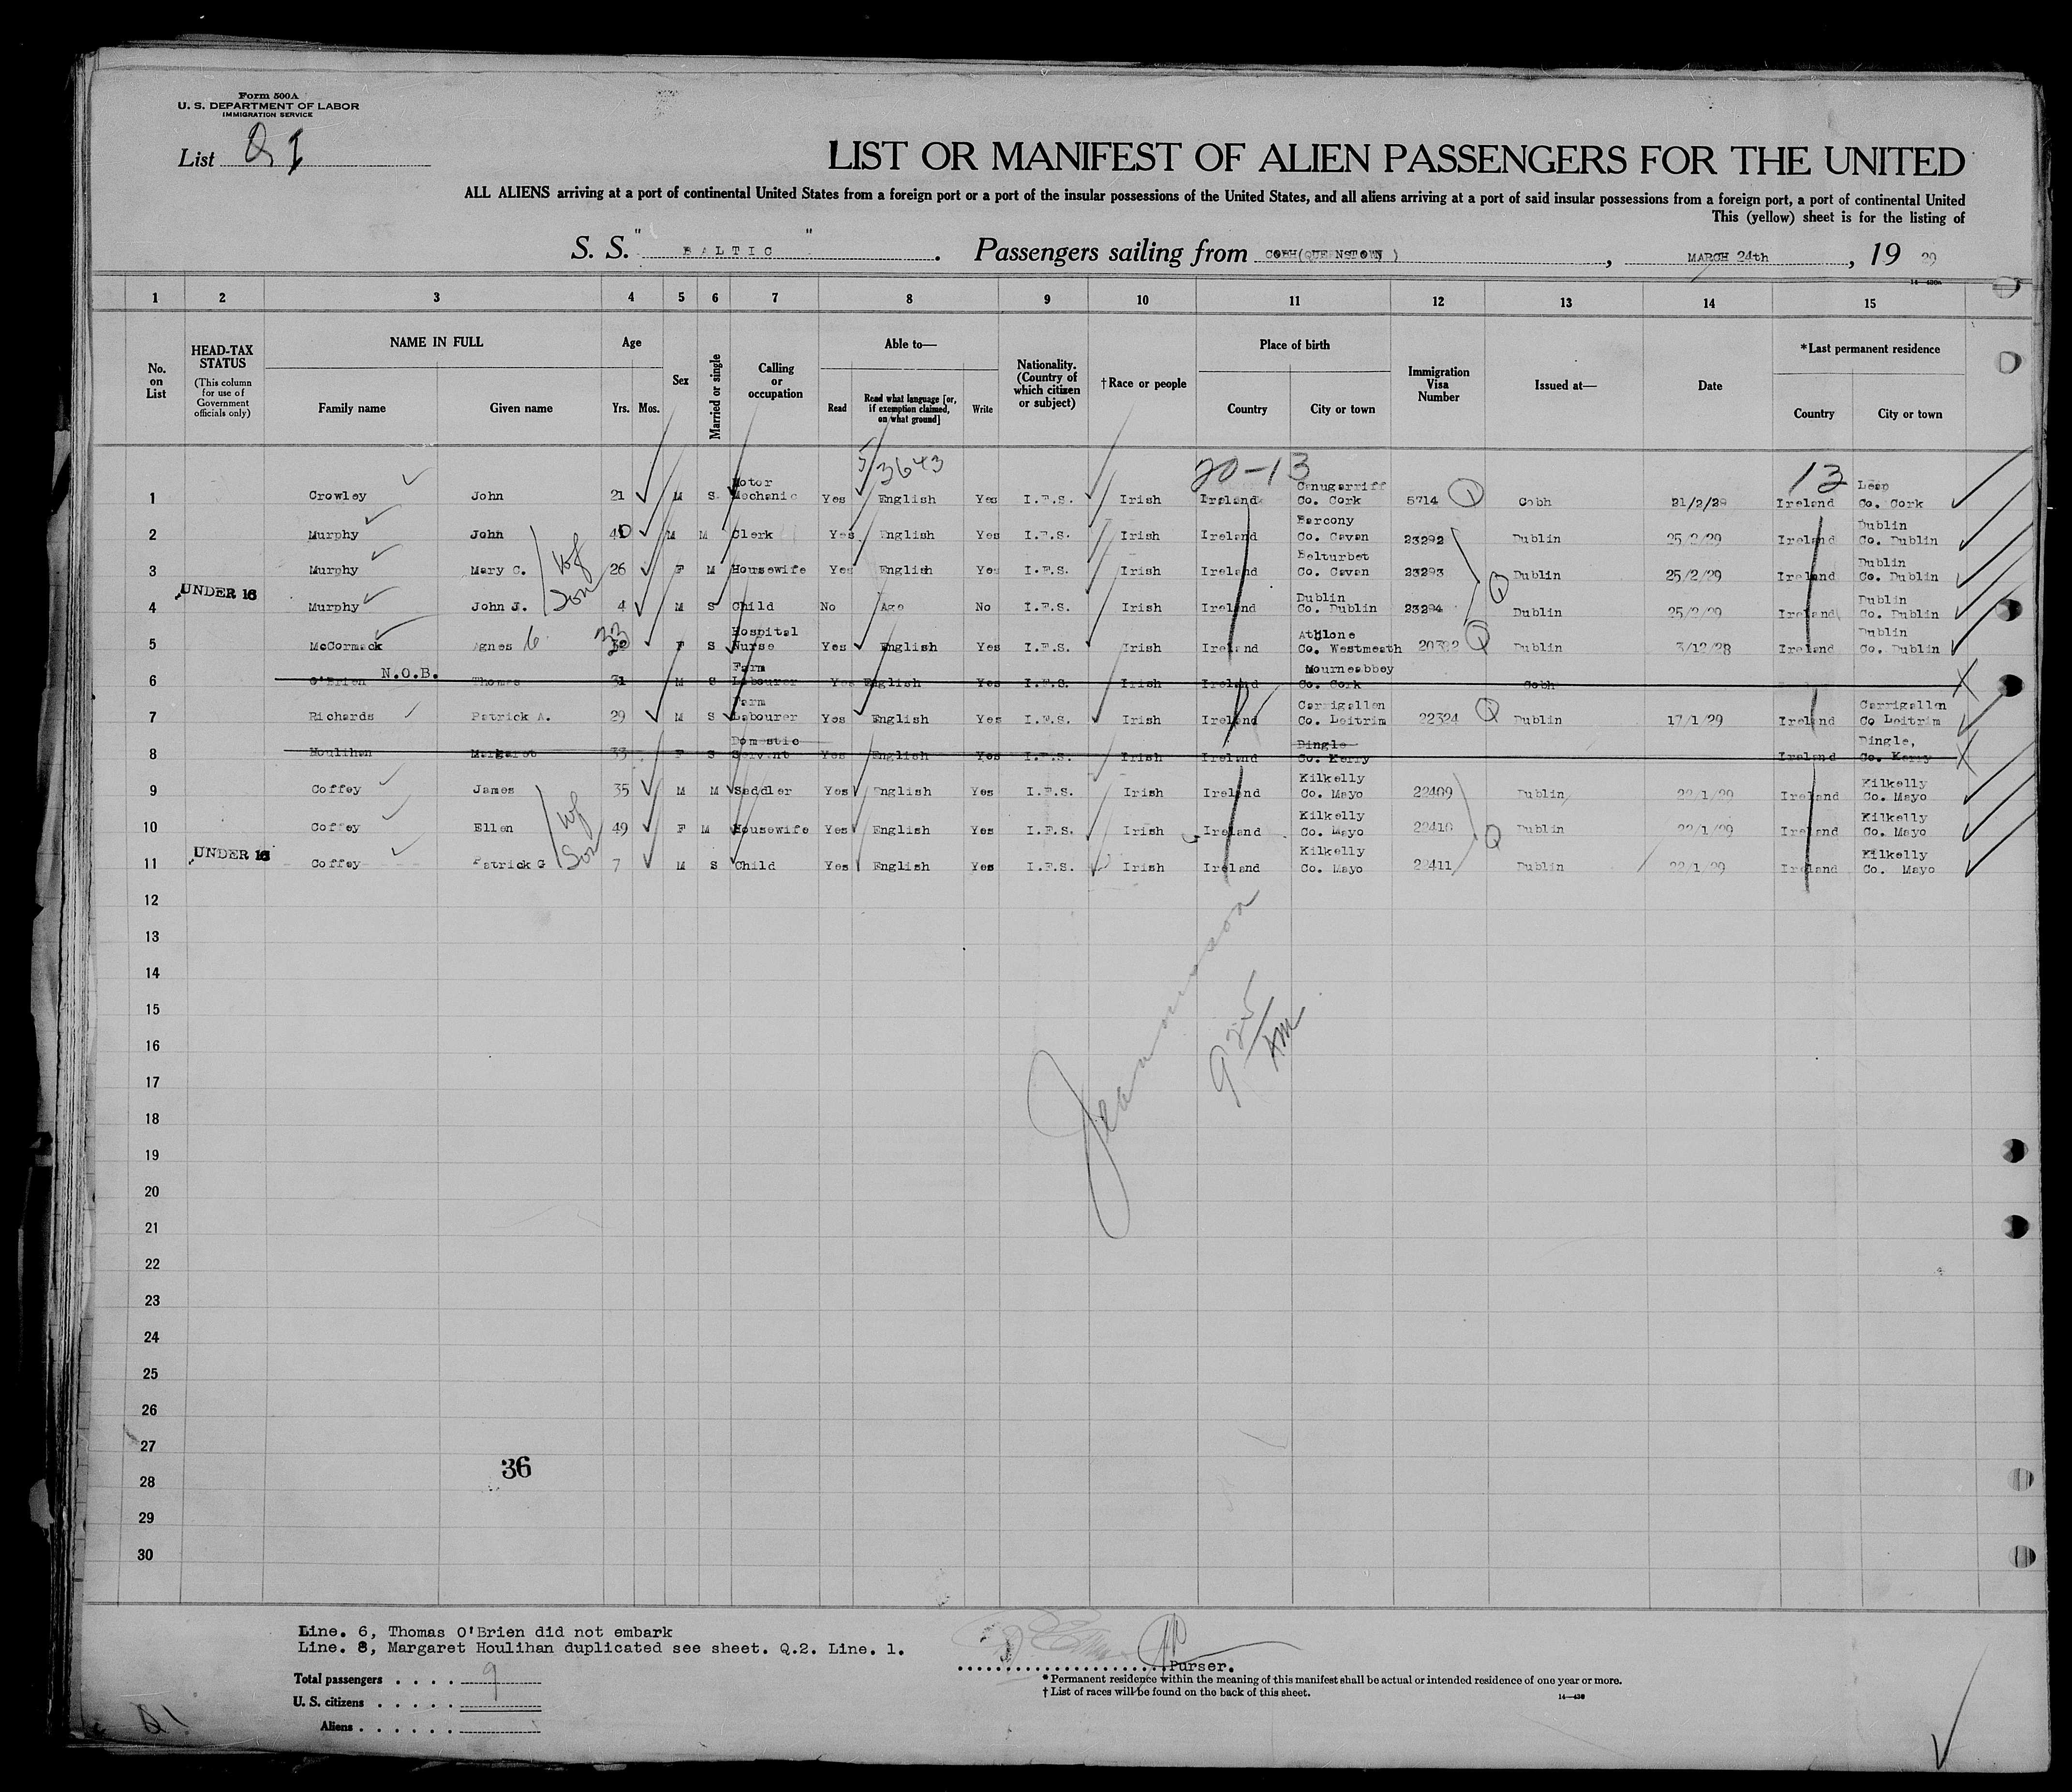 Form 500A
U. S. DEPARTMENT OF LABOR
IMMIGRATION SERVICE
List Q 1
LIST OR MANIFEST OF ALIEN PASSENGERS FOR THE UNITED
ALL ALIENS arriving at a port of continental United States from a foreign port or a port of the insular possessions of the United States, and all aliens arriving at a port of said insular possessions from a foreign port, a port of continental United
This (yellow) sheet is for the listing of
S. S. " BALTIC " . Passengers sailing from COBH(QUEENSTOWN ) , MARCH 24th , 19 29
1 2 3 4 5 6 7 8 9 10 11 12 13 14 15
No. on List
HEAD-TAX STATUS (This column for use of Government officials only)
NAME IN FULL Family name Given name
Age Yrs. Mos.
Sex
Married or single
Calling or occupation
Able to— Read Read what language [or, if exemption claimed, on what ground] Write
Nationality. (Country of which citizen or subject)
†Race or people
Place of birth Country City or town
Immigration Visa Number
Issued at—
Date
*Last permanent residence Country City or town
5/3643 20-13 13
1 Crowley John 21 M S Motor Mechanic Yes English Yes I.F.S. Irish Ireland Co. Cork 5714 Q Cobh 21/2/29 Ireland Leap Co. Cork
2 Murphy John 40 M M Clerk Yes English Yes I.F.S. Irish Ireland Co. Cavan 23292 Dublin 25/2/29 Ireland Dublin Co. Dublin
3 Murphy Mary C. wf 26 F M Housewife Yes English Yes I.F.S. Irish Ireland Belturbet Co. Cavan 23293 Dublin 25/2/29 Ireland Dublin Co. Dublin
UNDER 16
4 Murphy John J. Son 4 M S Child No Age No I.F.S. Irish Ireland Dublin Co. Dublin 23294 Q Dublin 25/2/29 Ireland Dublin Co. Dublin
5 McCormack Agnes 33 F S Hospital Nurse Yes English Yes I.F.S. Irish Ireland Athlone Co. Westmeath Q Dublin 3/12/28 Ireland Dublin Co. Dublin
6 O'Brien N.O.B. Thomas 31 M S Farm Labourer Yes English Yes I.F.S. Irish Ireland Mourneabbey Co. Cork Cobh X
7 Richards Patrick A. 29 M S Farm Labourer Yes English Yes I.F.S. Irish Ireland Carrigallen Co. Leitrim 22324 Q Dublin 17/1/29 Ireland Carrigallen Co Leitrim
8 Houlihan Margaret 33 F S Domestic Servant Yes English Yes I.F.S. Irish Ireland Dingle Co. Kerry Ireland Dingle, Co. Kerry X
9 Coffey James 35 M M Saddler Yes English Yes I.F.S. Irish Ireland Kilkelly Co. Mayo 22409 Dublin 22/1/29 Ireland Kilkelly Co. Mayo
10 Coffey Ellen wf 49 F M Housewife Yes English Yes I.F.S. Irish Ireland Kilkelly Co. Mayo 22410 Q Dublin 22/1/29 Ireland Kilkelly Co. Mayo
UNDER 16
11 Coffey Patrick G Son 7 M S Child Yes English Yes I.F.S. Irish Ireland Kilkelly Co. Mayo 22411 Dublin 22/1/29 Ireland Kilkelly Co. Mayo
12
13
14
15
16
17
18
19
20
21
22
23
24
25
26
27
28
29
30
9 25/AM
36
Line. 6, Thomas O'Brien did not embark
Line. 8, Margaret Houlihan duplicated see sheet. Q.2. Line. 1.
Purser.
Total passengers . . . . 9
U. S. citizens . . . . .
Aliens . . . . . .
* Permanent residence within the meaning of this manifest shall be actual or intended residence of one year or more.
† List of races will be found on the back of this sheet.
14—430
Q1